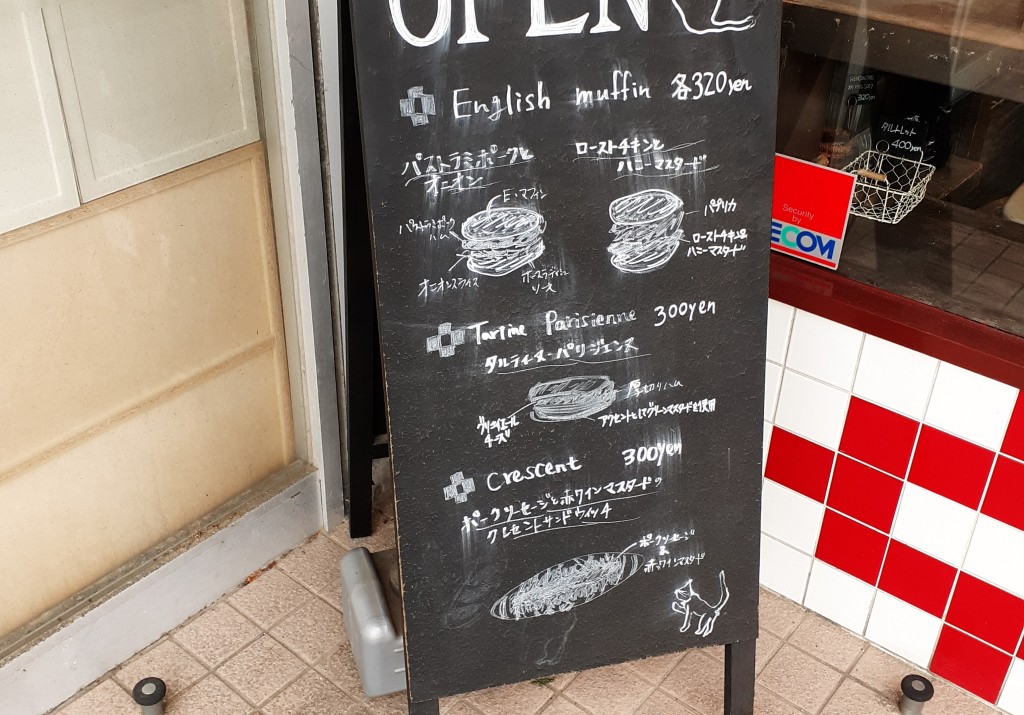 OPEN
English muffin 各320yen
パストラミポークと
オニオン
ローストチキンと
ハニーマスタード
E・マフィン
パストラミポーク
ハム
オニオンスライス
ホースラディッシュ
ソース
パプリカ
ローストチキン&
ハニーマスタード
Tartine Parisienne 300yen
タルティーヌ・パリジェンヌ
厚切りハム
グリュイエール
チーズ
アクセントとしてグリーンマスタードを使用
Crescent 300yen
ポークソーセージと赤ワインマスタードの
クレセントサンドウィッチ
ポークソーセージ
&
赤ワインマスタード
タルトレット
400yen
320yen
Security
by
ECOM